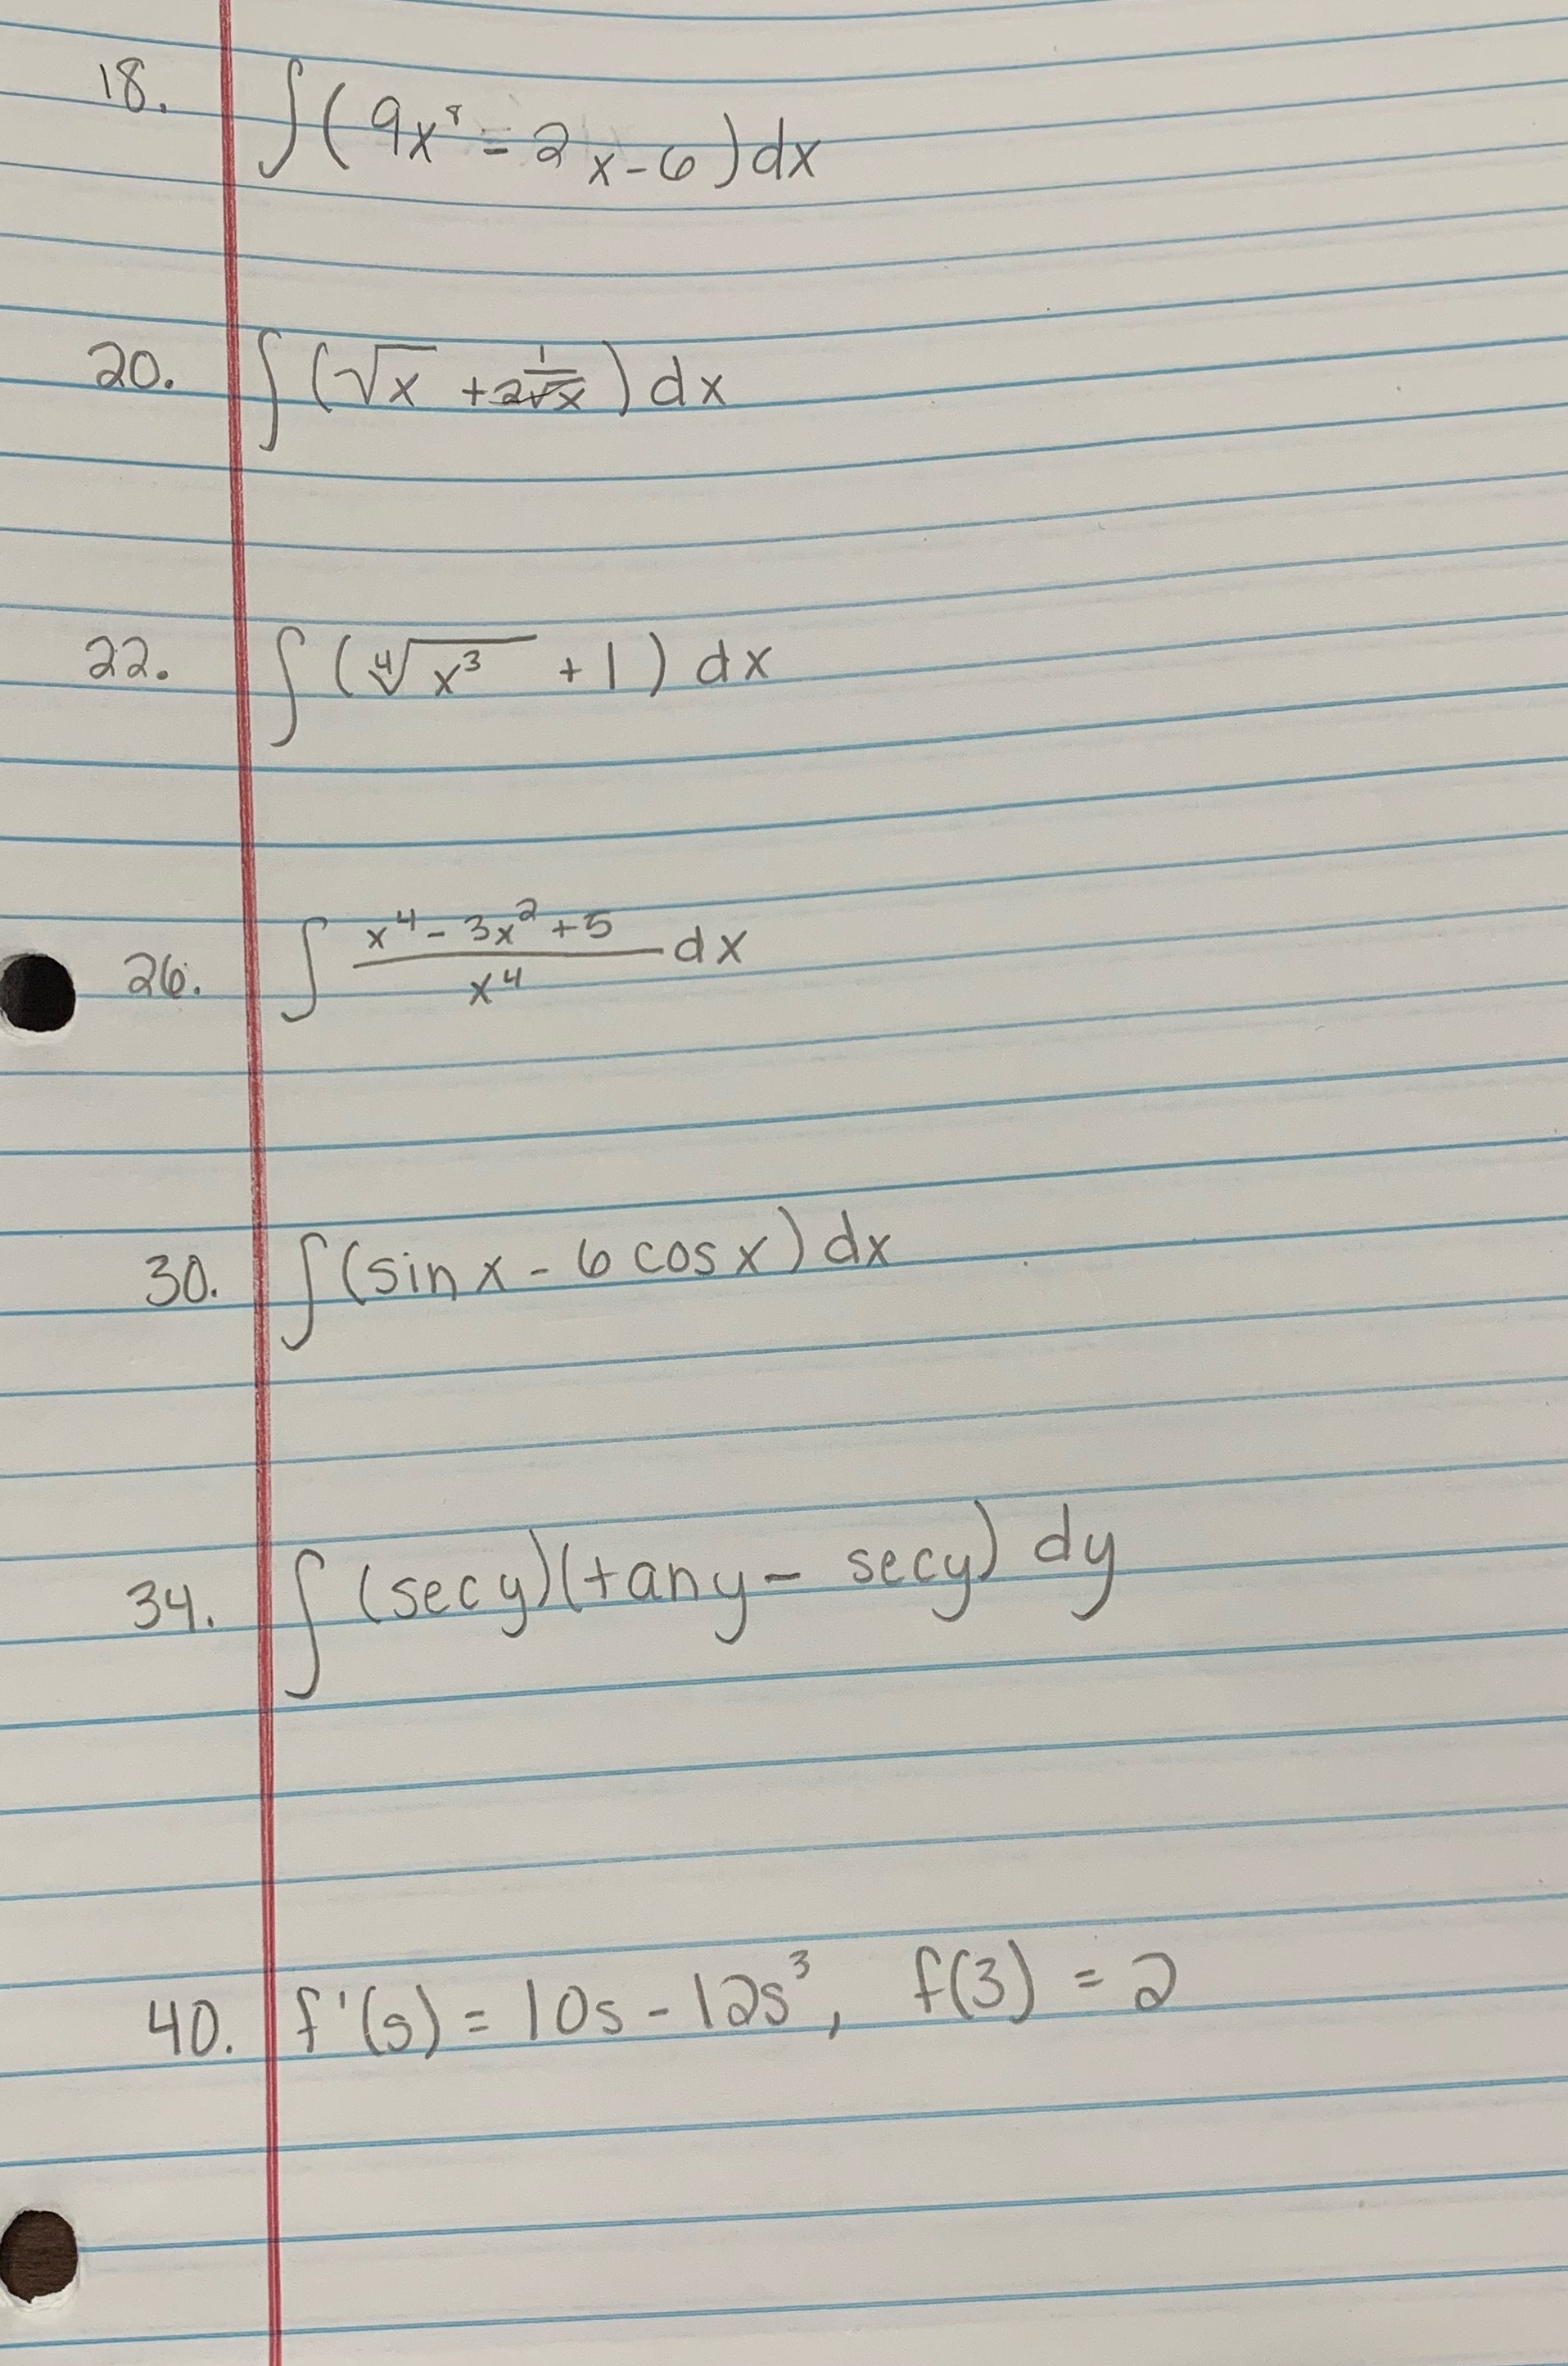 18. ∫(9x⁸ - 2x-6)dx
20. ∫(√x + 1/(2√x)) dx
22. ∫(∜x³ + 1) dx
26. ∫ (x⁴ - 3x² + 5)/x⁴ dx
30. ∫(sin x - 6 cos x) dx
34. ∫(sec y)(tan y - sec y) dy
40. f'(s) = 10s - 12s³, f(3) = 2